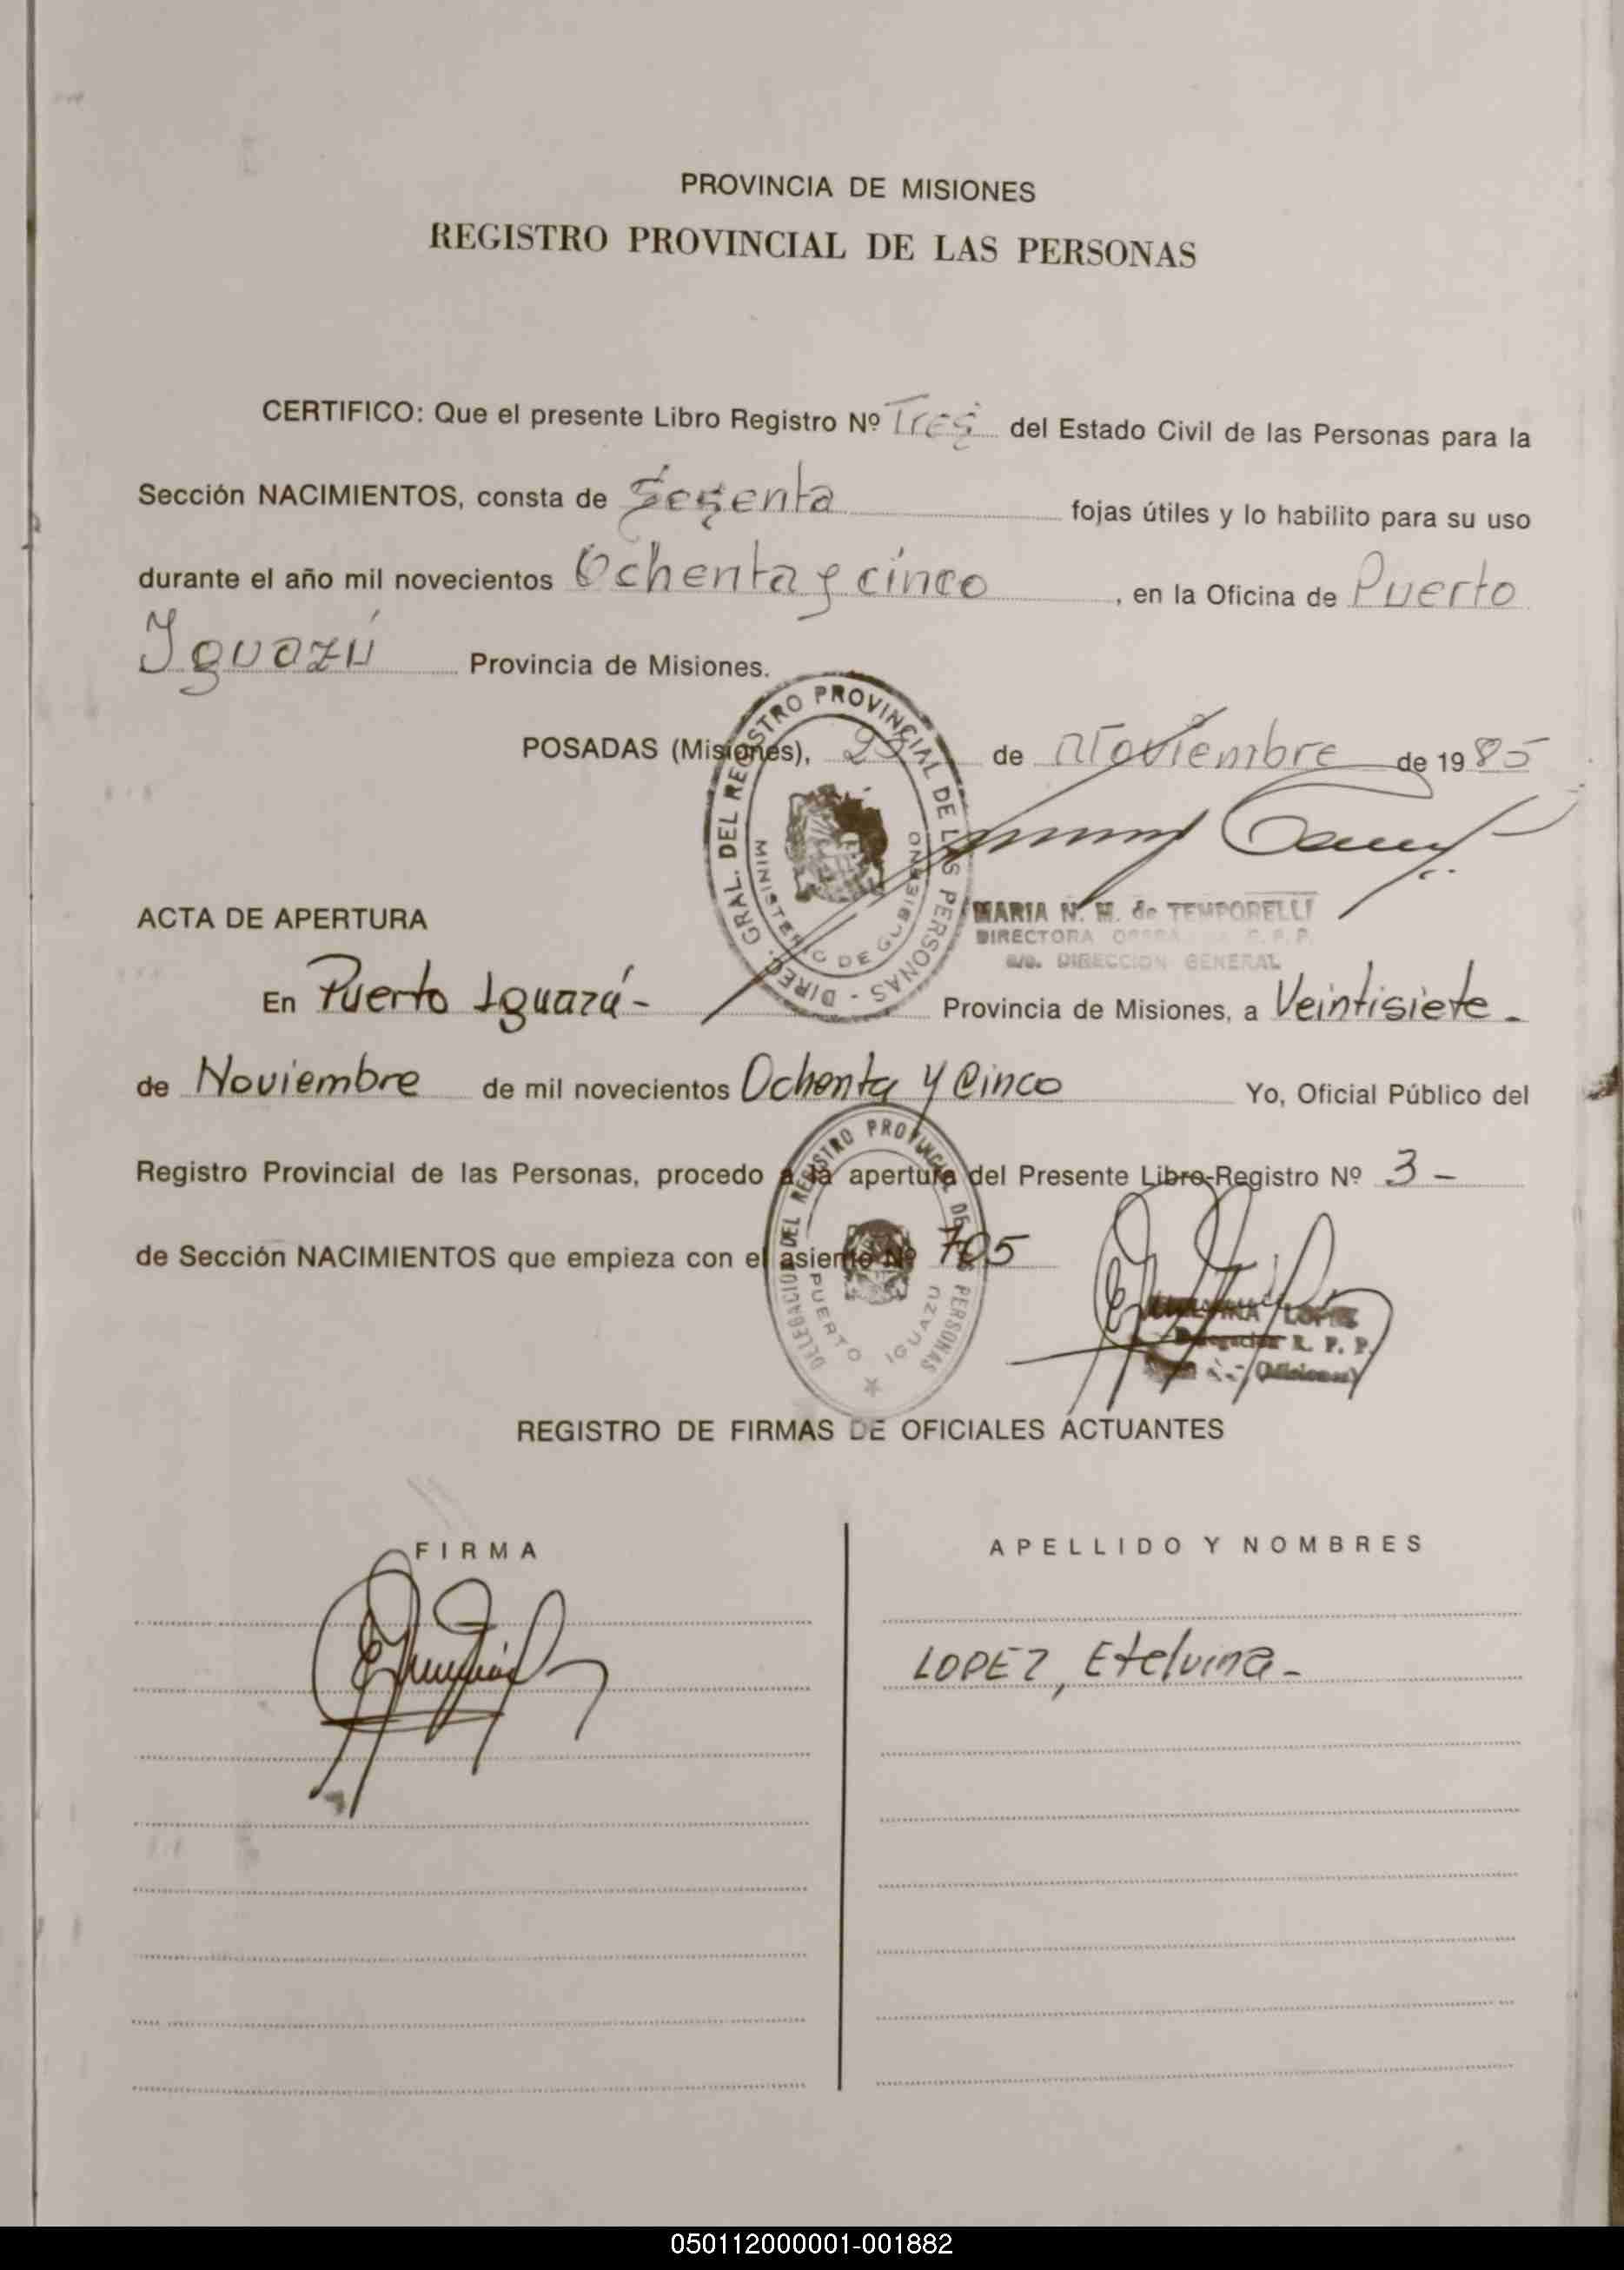 PROVINCIA DE MISIONES
REGISTRO PROVINCIAL DE LAS PERSONAS
CERTIFICO: Que el presente Libro Registro Nº Tres del Estado Civil de las Personas para la
Sección NACIMIENTOS, consta de Sesenta fojas útiles y lo habilito para su uso
durante el año mil novecientos Ochenta y cinco, en la Oficina de Puerto
Iguazú Provincia de Misiones.
POSADAS (Misiones), de Noviembre de 1985
DIREC. GRAL. DEL REGISTRO PROVINCIAL DE LAS PERSONAS
MINISTERIO DE GOBIERNO
MARIA N. M. de TEMPORELLI
DIRECTORA R. P. P.
a/c. DIRECCION GENERAL
ACTA DE APERTURA
En Puerto Iguazú- Provincia de Misiones, a Veintisiete.
de Noviembre de mil novecientos Ochenta y Cinco Yo, Oficial Público del
Registro Provincial de las Personas, procedo a la apertura del Presente Libro-Registro Nº 3-
de Sección NACIMIENTOS que empieza con el asiento Nº 705
DELEGACION DEL REGISTRO PROVINCIAL DE PERSONAS
PUERTO IGUAZU
LOPEZ
Delegacion R. P. P.
(Misiones)
REGISTRO DE FIRMAS DE OFICIALES ACTUANTES
FIRMA APELLIDO Y NOMBRES
LOPEZ, Etelvina-
050112000001-001882